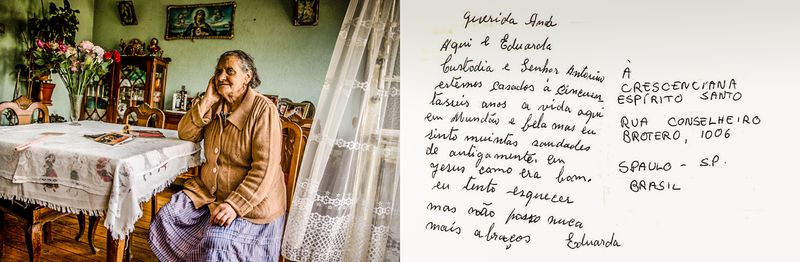 Querida Ana
Aqui e Eduarda
Custodia e Senhor Antonino
estemos casados à cincuen
taseis anos a vida aqui
em Mundãs e bela mas eu
sinto muintas saudades
de antigamente en
Jesus como era bom.
eu tento esquecer
mas não posso nuca
mais abraços Eduarda
À
CRESCENCIANA
ESPÍRITO SANTO
RUA CONSELHEIRO
BROTERO, 1006
SPAULO - S.P.
BRASIL